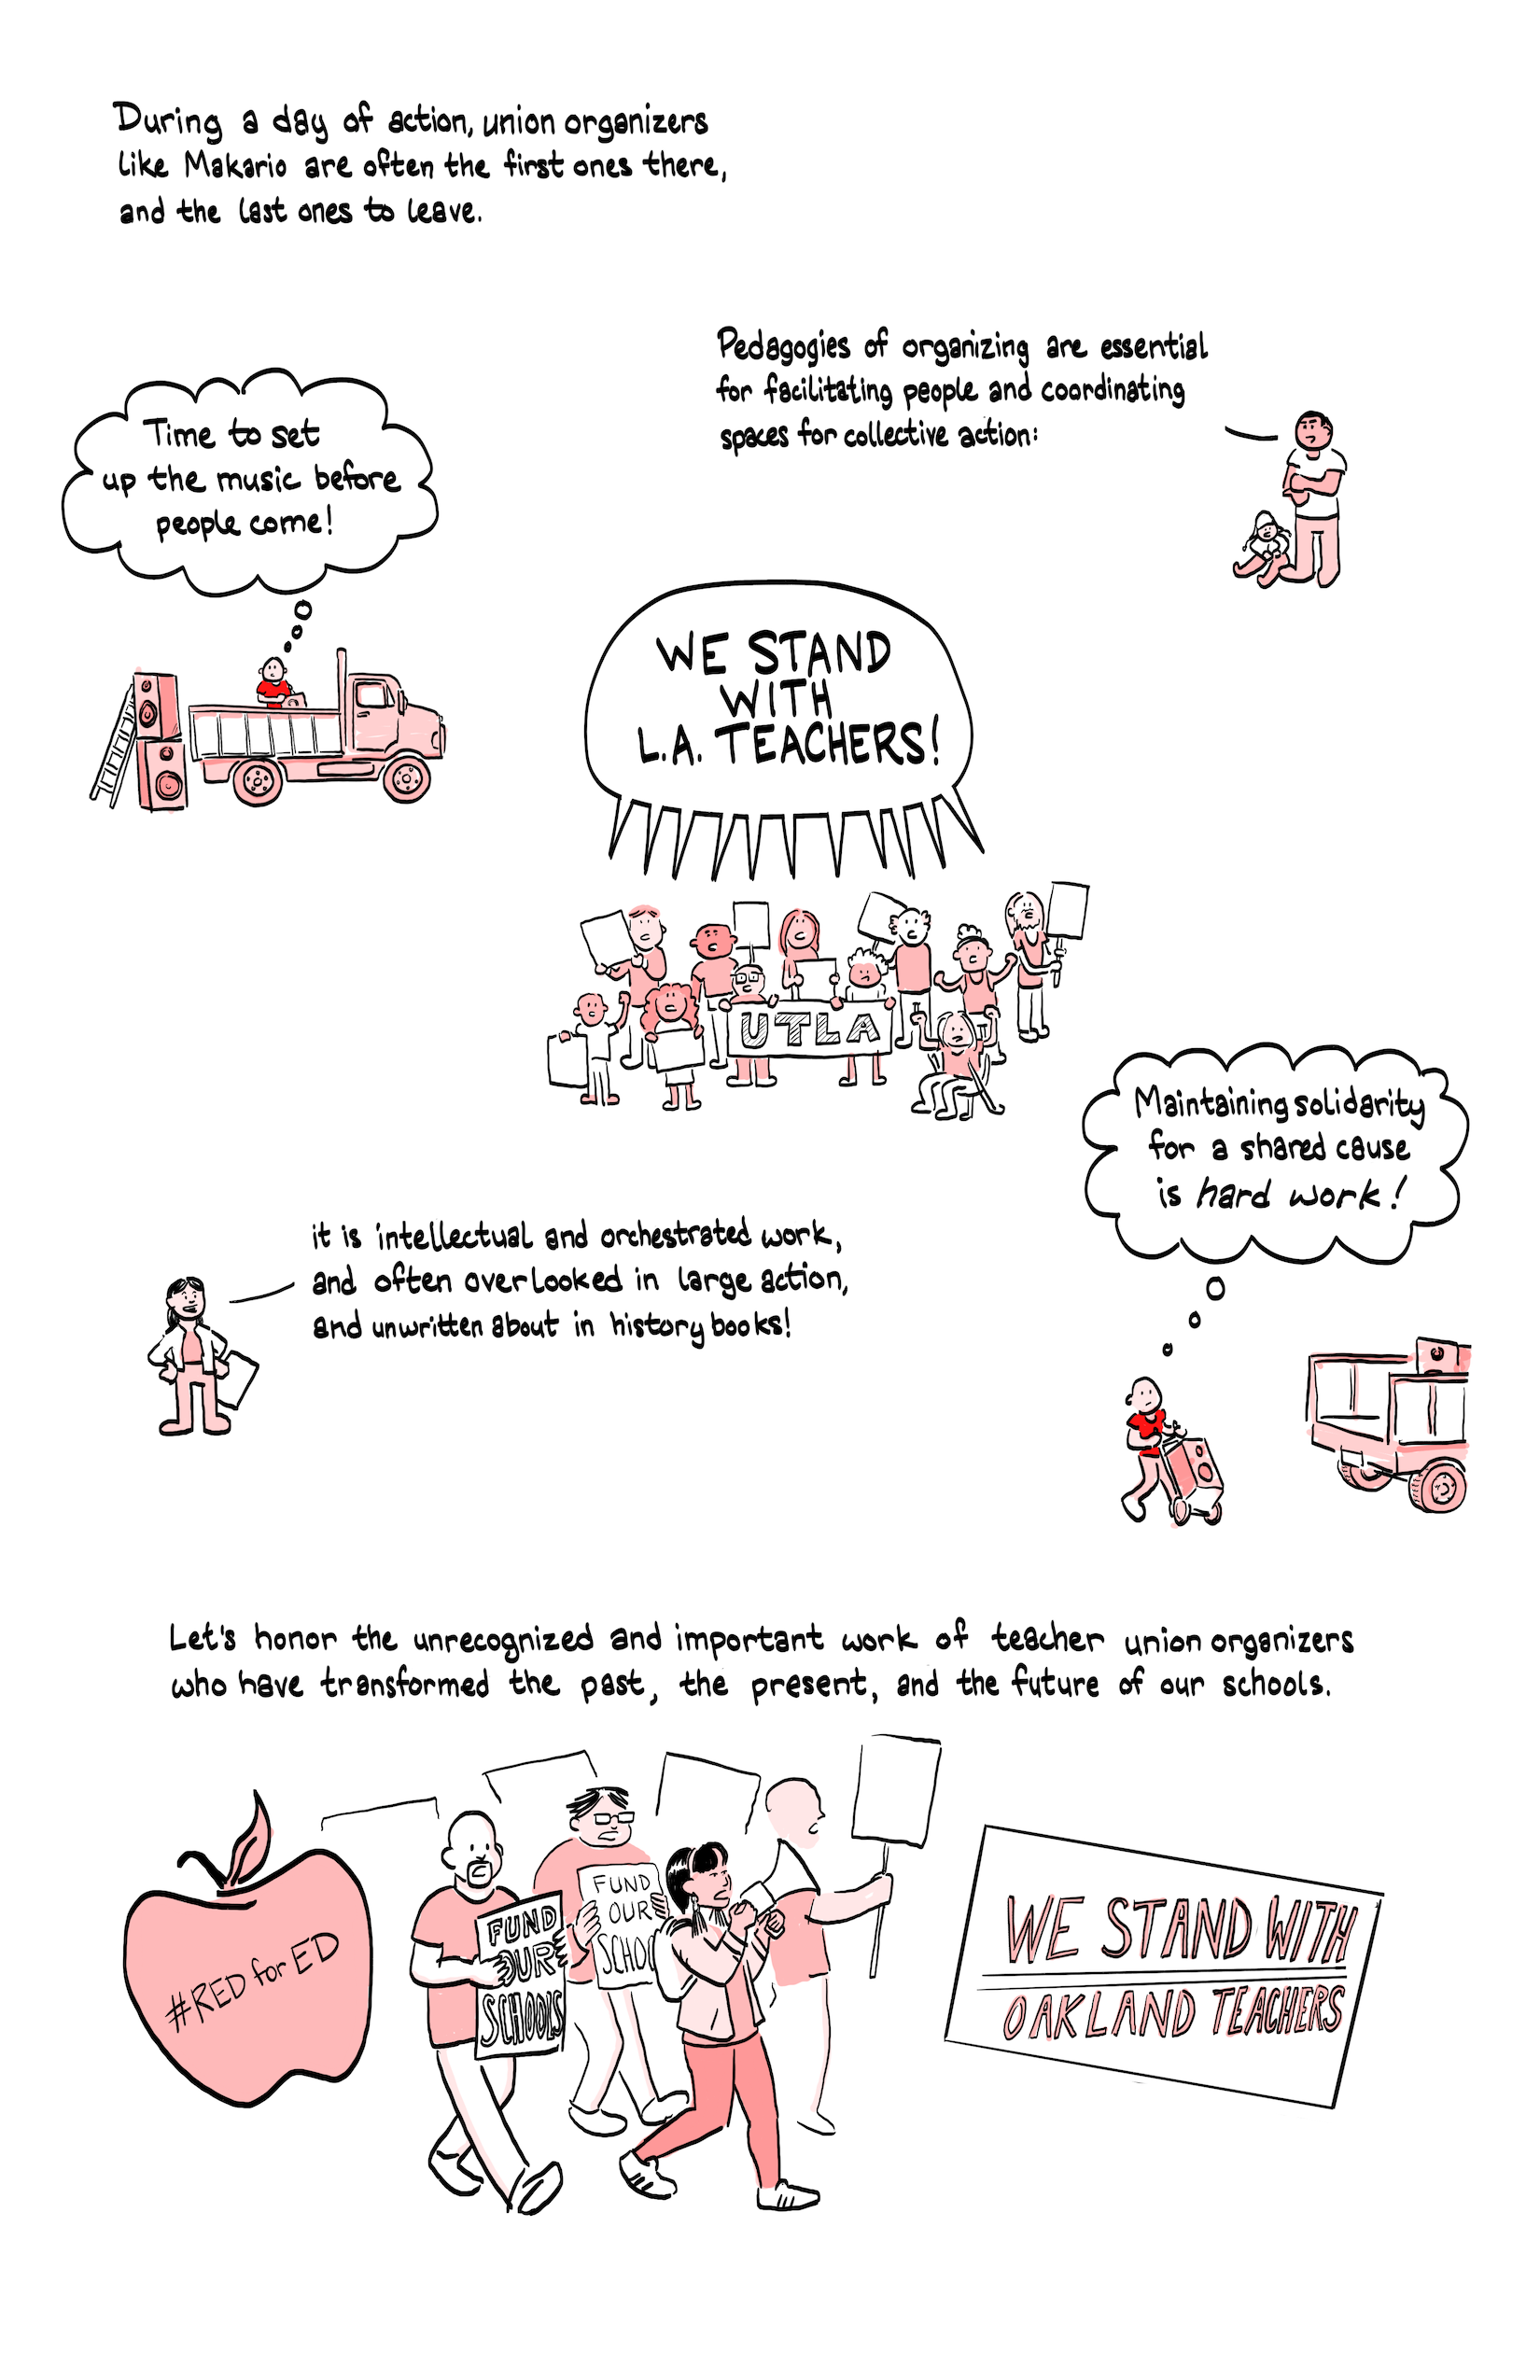 During a day of action, union organizers
like Makario are often the first ones there,
and the last ones to leave.
Pedagogies of organizing are essential
for facilitating people and coordinating
spaces for collective action:
Time to set
up the music before
people come!
WE STAND
WITH
L.A. TEACHERS!
UTLA
Maintaining solidarity
for a shared cause
is hard work!
it is intellectual and orchestrated work,
and often overlooked in large action,
and unwritten about in history books!
Let's honor the unrecognized and important work of teacher union organizers
who have transformed the past, the present, and the future of our schools.
#RED for ED
FUND
OUR
SCHOOLS
FUND
OUR
SCHOO
WE STAND WITH
OAKLAND TEACHERS